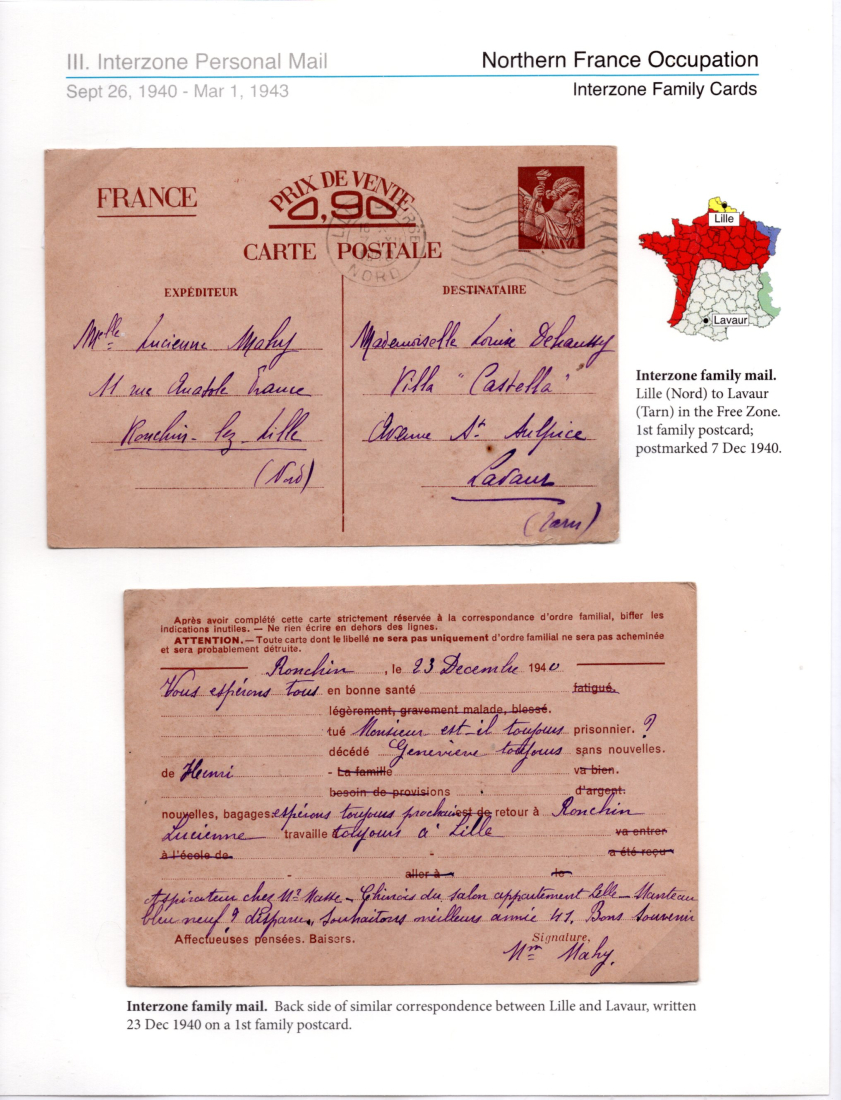 III. Interzone Personal Mail
Northern France Occupation
Sept 26, 1940 - Mar 1, 1943
Interzone Family Cards
FRANCE
PRIX DE VENTE
0,90
CARTE POSTALE
NORD
EXPÉDITEUR
DESTINATAIRE
Melle Lucienne Mahy
11 rue Anatole France
Ronchin-lez-Lille
(Nord)
Mademoiselle Louise Dehaussy
Villa "Castella"
Avenue St Sulpice
Lavaur
(Tarn)
Lille
Lavaur
Interzone family mail.
Lille (Nord) to Lavaur
(Tarn) in the Free Zone.
1st family postcard;
postmarked 7 Dec 1940.
Après avoir complété cette carte strictement réservée à la correspondance d'ordre familial, biffer les
indications inutiles. — Ne rien écrire en dehors des lignes.
ATTENTION. — Toute carte dont le libellé ne sera pas uniquement d'ordre familial ne sera pas acheminée
et sera probablement détruite.
Ronchin, le 23 Decembre 1940
Vous espérons tous en bonne santé fatigué.
légèrement, gravement malade, blessé.
tué Monsieur est-il toujours prisonnier. ?
décédé Geneviève toujours sans nouvelles.
de Henri - La famille va bien.
besoin de provisions d'argent.
nouvelles, bagages espérons toujours prochain est de retour à Ronchin
Lucienne travaille toujours à Lille va entrer
à l'école de - a été reçu
- aller à le
Aspirateur chez Mr Masse - Chinois du salon appartement Lille - Manteau
bleu neuf ? disparu, Souhaitons meilleurs année 41. Bons Souvenir
Affectueuses pensées. Baisers. Signature,
Mme Mahy.
Interzone family mail. Back side of similar correspondence between Lille and Lavaur, written
23 Dec 1940 on a 1st family postcard.